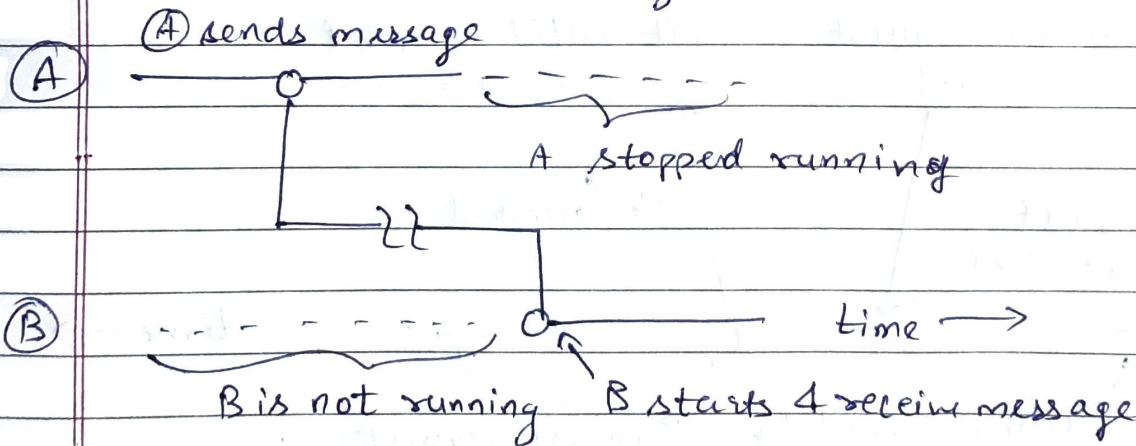 Ⓐ sends message
Ⓐ
A stopped running
Ⓑ
time →
B is not running
B starts & receive message